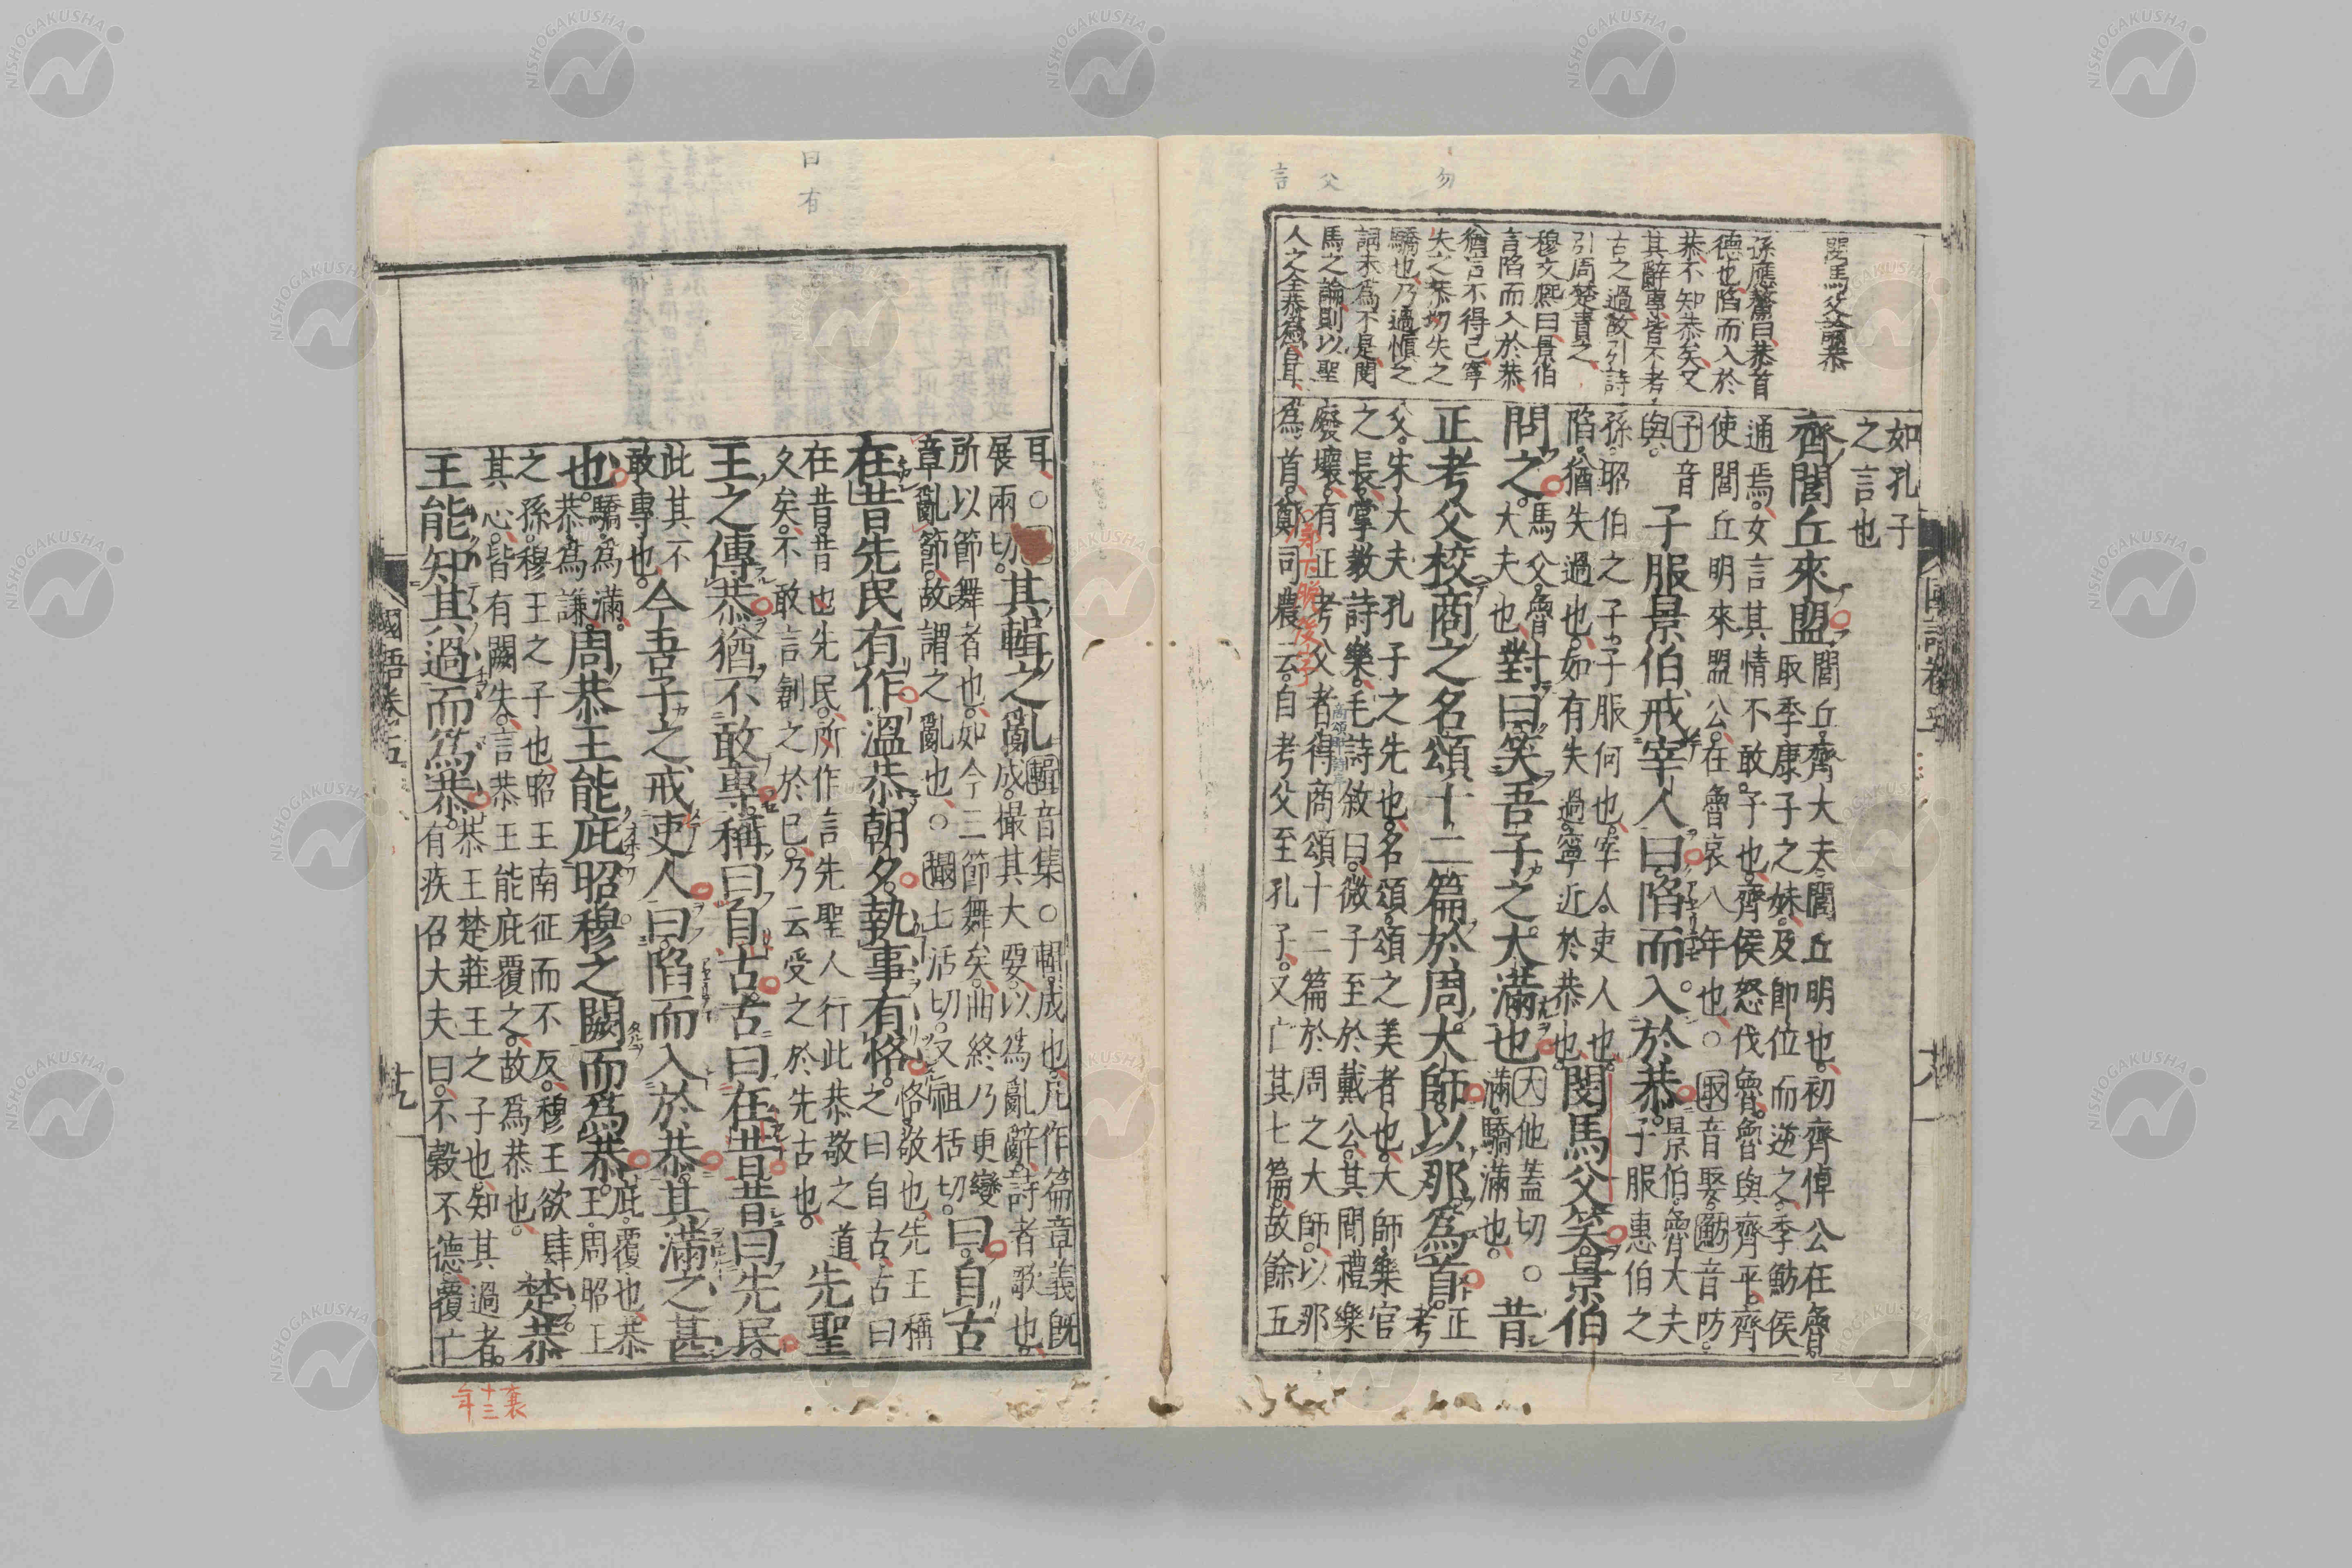 閔馬父論恭
孫應鰲曰恭首
德也陷而入於
恭不知恭矣又
其辭專皆不考
古之過故引詩
引周楚責之
穆文熙曰景伯
言陷而入於恭
猶言不得已寧
失之恭切失之
驕也乃過愼之
詞未爲不是閔
馬之論則以聖
人之全恭爲言耳
勿
父
言
如孔子
之言也
齊閭丘來盟。閭丘。齊大夫。閭丘明也。初齊悼公在魯。
取季康子之妹。及即位而逆之。季魴侯
通焉。女言其情不敢。予也。齊侯怒伐魯。魯與齊平。齊
使閭丘明來盟公。在魯哀八年也。○取音娶。魴音防。
予音與。子服景伯戒宰人曰。陷而入於恭。景伯。魯大夫子服惠伯之
孫。昭伯之子子服何也。宰人。吏人也。
陷。猶失過也。如有失過。寧近於恭也。閔馬父笑。景伯
問之。馬父。魯大夫也。對曰。笑吾子之大滿也。大他蓋切○滿。驕滿也。昔
正考父校商之名頌十二篇於周大師。以那爲首。正考
父。宋大夫孔子之先也。名頌。頌之美者也。大師。樂官
之長。掌教詩樂。毛詩敘曰。微子至於戴公。其間禮樂
廢壞。有正考父者。得商頌十二篇於周之大師。以那
爲首。鄭司農云。自考父至孔子。又亡其七篇。故餘五
鄭下脫後字
國語卷五
十八
曰
有
耳。○展兩切。其輯之亂輯音集○輯。成也。凡作篇章義既
成。撮其大要。以爲亂辭。詩者歌也。
所以節舞者也。如今三節舞矣。曲終乃更變
章亂節。故謂之亂也。○撮七活切。又祖括切。曰。自古
在昔。先民有作。溫恭朝夕。執事有恪。恪。敬也。先王稱
之曰自古。古曰
在昔。昔也。先民。所作言先聖人行此恭敬之道。
久矣。不敢言創之於己。乃云受之於先古也。先聖
王之傳恭。猶不敢專。稱曰自古。古曰在昔。昔曰先民。
此其不
敢專也。今吾子之戒吏人曰。陷而入於恭。其滿之甚
也。驕。爲滿。
恭。爲謙。周恭王能庇昭穆之闕而爲恭。庇。覆也。恭
王。周昭王
之孫。穆王之子也。昭王南征而不反。穆王欲肆
其心。皆有闕失。言恭王能庇覆之。故爲恭也。楚恭
王能知其過而爲恭。恭王楚莊王之子也。知其過者。
有疾召大夫曰。不穀不德。覆亡
襄十三年
國語卷五
十九